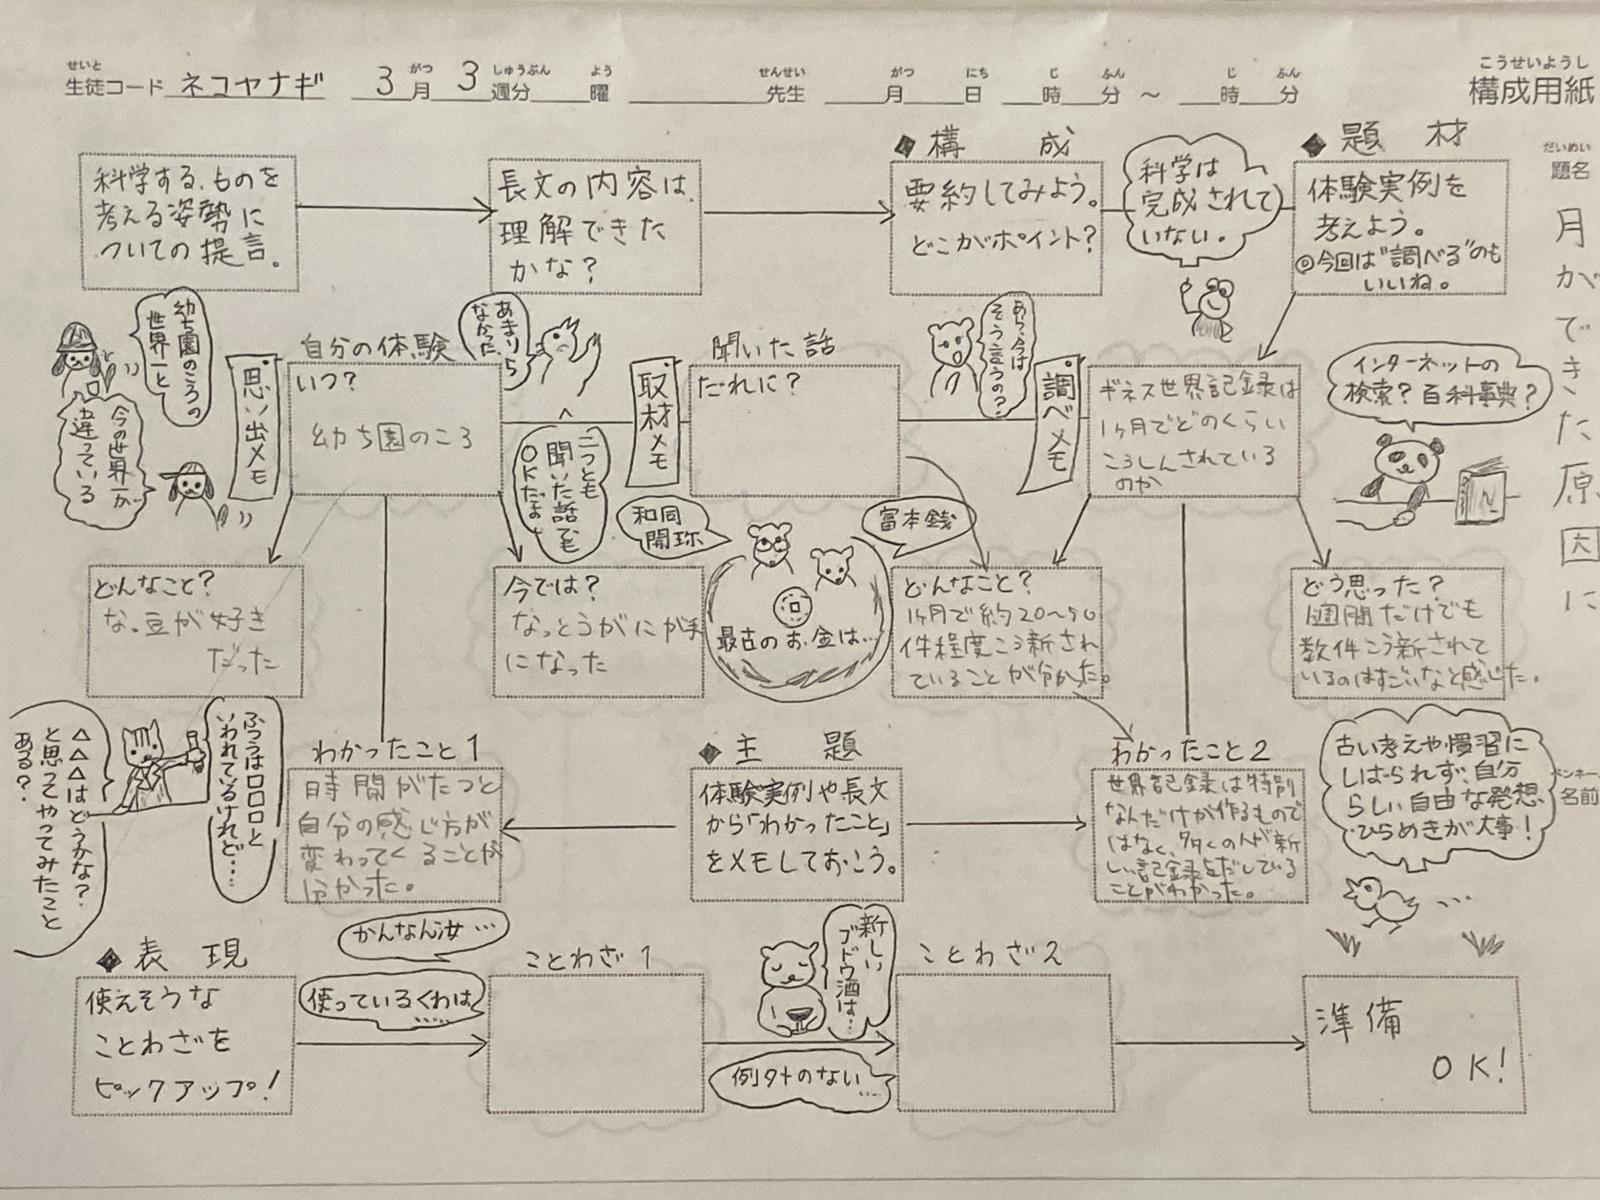 せいと がつ しゅうぶん よう せんせい がつ にち じ ふん じ ふん
生徒コード ネコヤナギ 3月 3週分 曜 先生 月 日 時 分 ～ 時 分
こうせいようし
構成用紙
だいめい
題名
月ができた原因に
◆題材
体験実例を
考えよう。
◎今回は"調べる"のも
いいね。
科学は
完成されて
いない。
◆構成
要約してみよう。
どこがポイント?
長文の内容は、
理解できた
かな?
科学する、ものを
考える姿勢に
ついての提言。
幼ち園のころの
世界一と
今の世界一が
違っている
思い出メモ
自分の体験
いつ?
幼ち園のころ
あまりら
なかった
二つとも
聞いた話でも
OKだよ
取材メモ
聞いた話
だれに?
あら、今は
そう言うの?
調べメモ
ギネス世界記録は
1ヶ月でどのくらい
こうしんされている
のか
インターネットの
検索? 百科事典?
どんなこと?
な、豆が好き
だった
今では?
なっとうがにが手
になった
和同
開珎
富本銭
最古のお金は…
どんなこと?
1ヶ月で約20～90
件程度こう新され
ていることが分かった。
どう思った?
1週間だけでも
数件こう新されて
いるのはすごいなと感じた。
ふつうは□□□と
いわれているけれど…
△△△はどうかな?
と思ってやってみたこと
ある?
わかったこと1
時間がたつと
自分の感じ方が
変わってくることが
分かった。
◆主題
体験実例や長文
から「わかったこと」
をメモしておこう。
わかったこと2
世界記録は特別
なんだけが作るもので
はなく、多くの人が新
しい記録をだしている
ことがわかった。
古い考えや慣習に
しばられず、自分
らしい自由な発想、
ひらめきが大事!
ペンネーム
名前
◆表現
使えそうな
ことわざを
ピックアップ!
かんなん汝…
使っているくわは
……
ことわざ1
新しい
ブドウ酒は…
例外のない
……
ことわざ2
準備
OK!